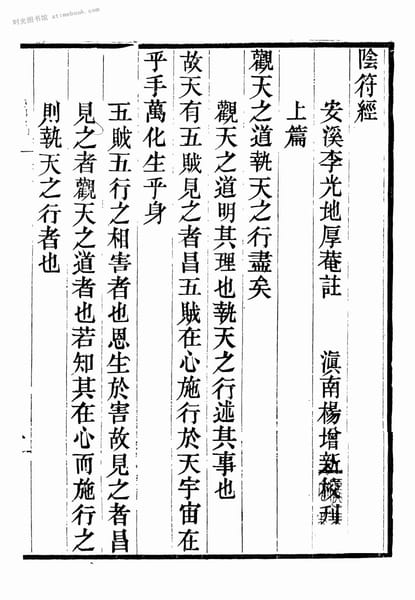 时光图书馆 xtimebook.com
陰符經
安溪李光地厚菴註 滇南楊增新校刊
上篇
觀天之道執天之行盡矣
觀天之道明其理也執天之行述其事也
故天有五賊見之者昌五賊在心施行於天宇宙在
乎手萬化生乎身
五賊五行之相害者也恩生於害故見之者昌
見之者觀天之道者也若知其在心而施行之
則執天之行者也